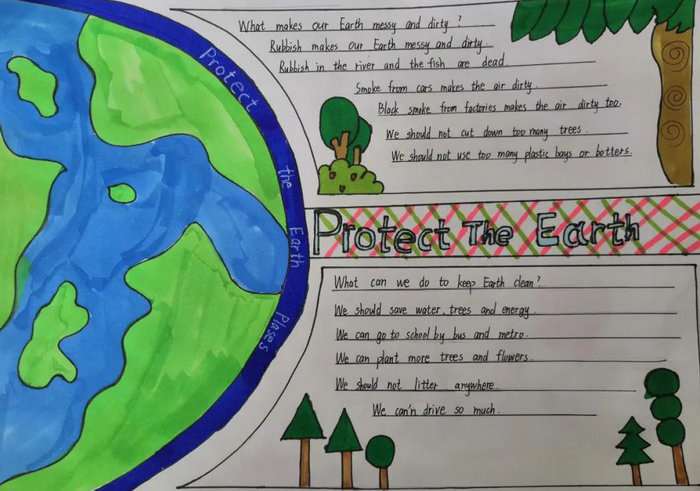 What makes our Earth messy and dirty ?
Rubbish makes our Earth messy and dirty.
Rubbish in the river and the fish are dead.
Smoke from cars makes the air dirty.
Black smoke from factories makes the air dirty too.
We should not cut down too many trees.
We should not use too many plastic bags or botters.
Protect the Earth Plases
Protect The Earth
What can we do to keep Earth clean?
We should save water, trees and energy.
We can go to school by bus and metro.
We can plant more trees and flowers.
We should not litter anywhere.
We can'n drive so much.